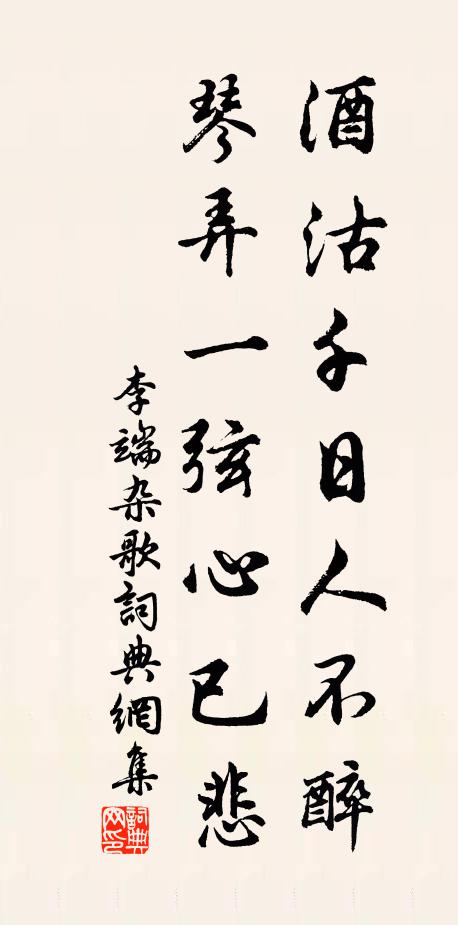 酒沽千日人不醉
琴弄一弦心已悲
李端杂歌詞典網集
詞典网印